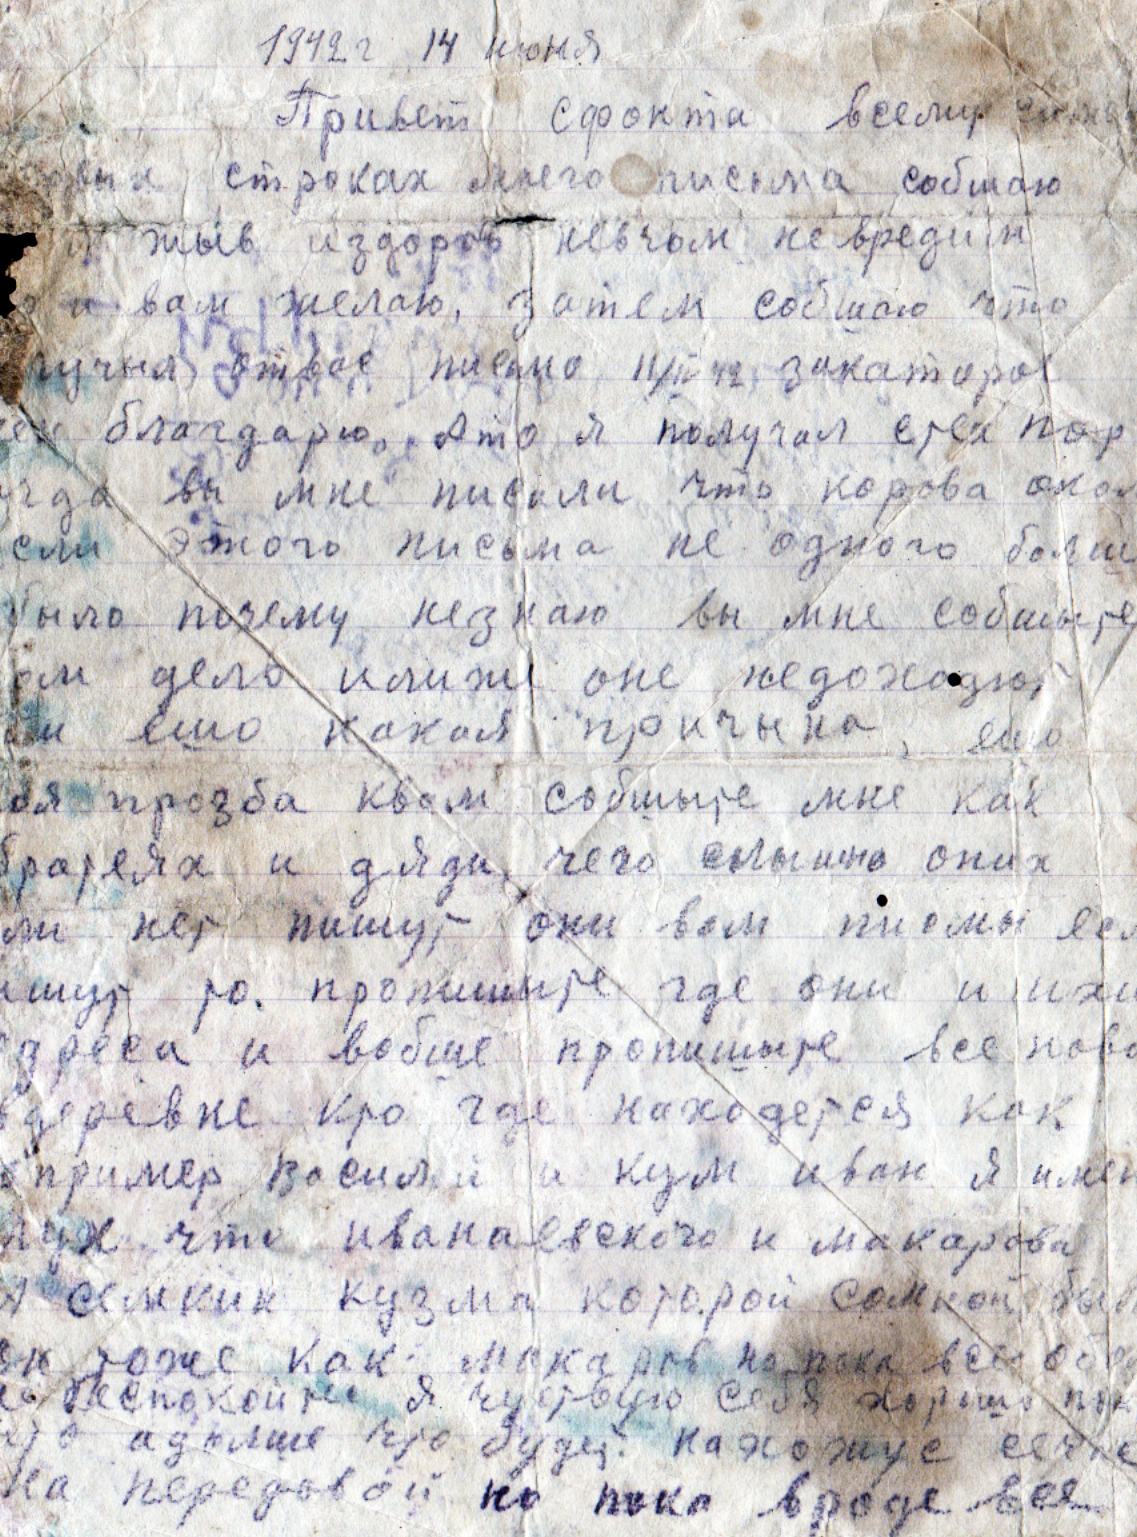 1942 г 14 июня
Привет сфонта всему
строках моего писма собшаю
жыв издоров невчом невредим
и вам желаю, затем собшаю что
лучил отвас писмо 11/II 42 закаторое
благдарю, Ато я получал стех пор
вы мне писали что корова
этого письма не одного болше
было почему незнаю вы мне собшыте
дело илиже оне недоходют
ешо какая причына, ешо
прозба квам собшыте мне как
братеях и дяди чего слышно оних
нет пишут они вам писмы
то. пропишыте где они и ихи
адреса и вобше пропишыте все ново
вдеревне кто где находется как
пример Василий и кум иван я имею
слух что иванаевского и макарова
семкин кузма которой сомной был
он тоже как макаров но пока все
беспокойтесь я чуствую себя хорошо пока
адалше что будет. нахожус
На передовой но пока вроде все